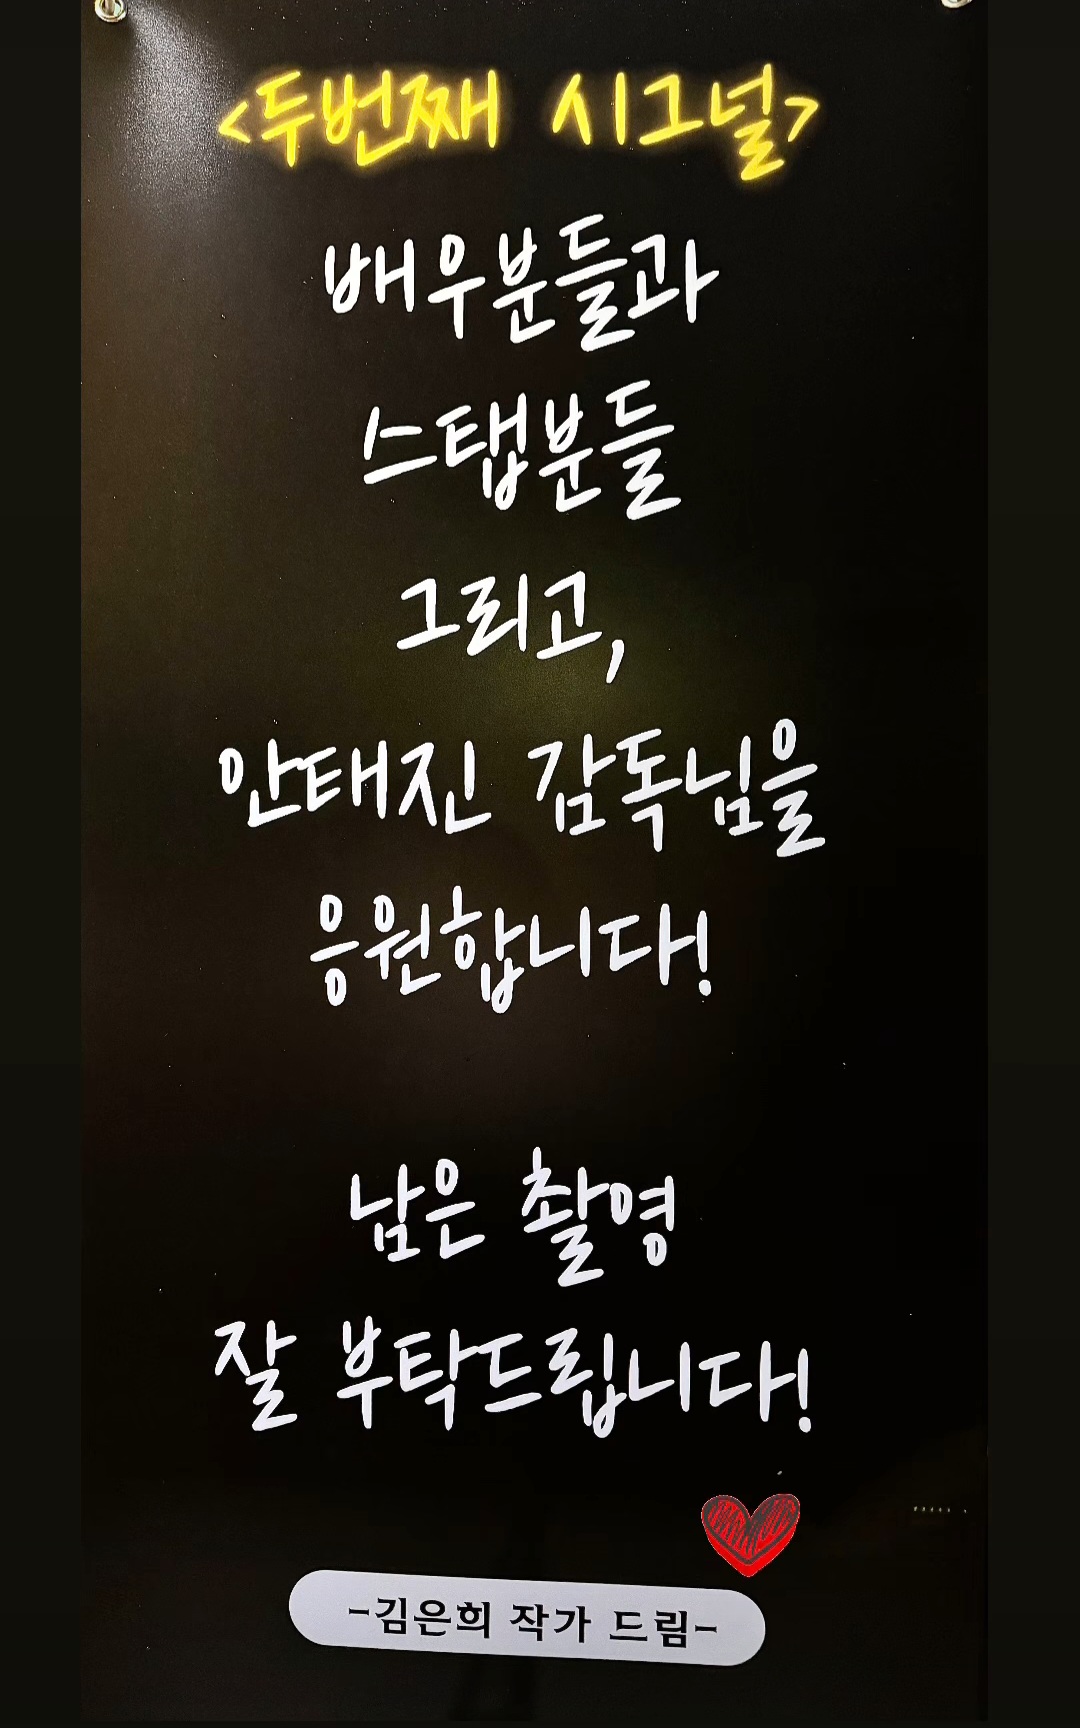 <두번째 시그널>
배우분들과
스탭분들
그리고,
안태진 감독님을
응원합니다!
남은 촬영
잘 부탁드립니다!
-김은희 작가 드림-